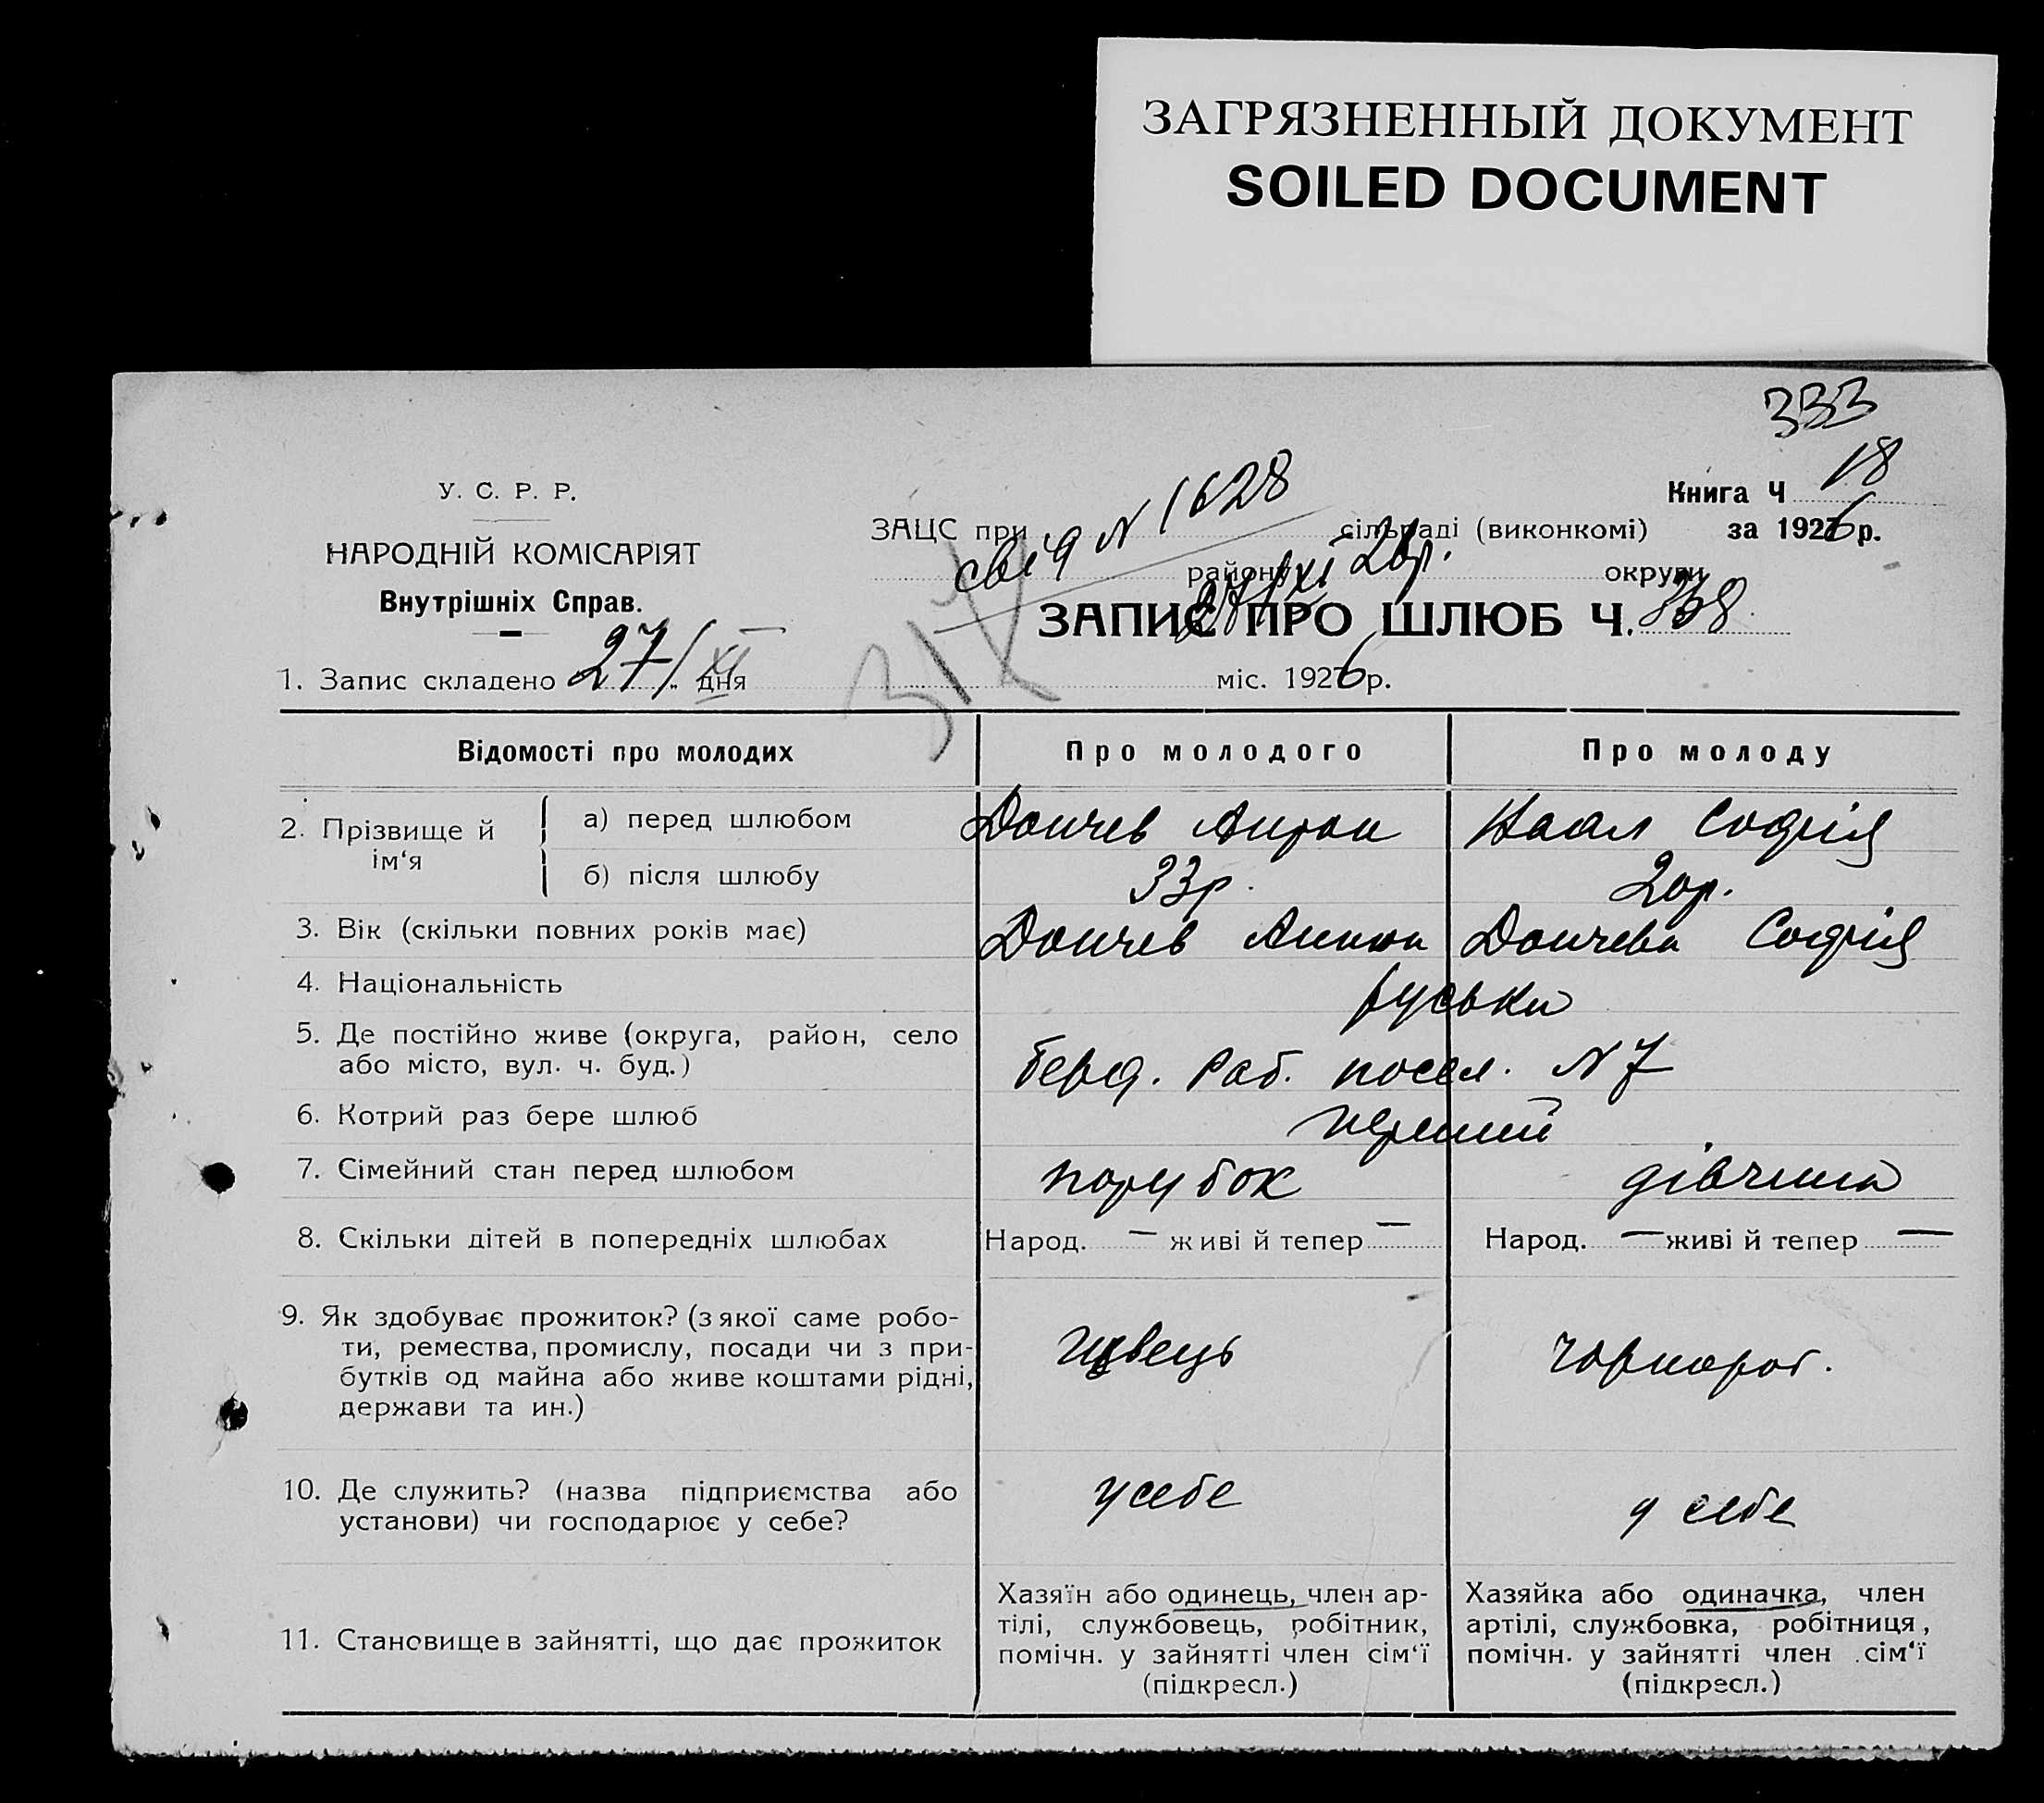 ЗАГРЯЗНЕННЫЙ ДОКУМЕНТ
SOILED DOCUMENT
333
У. С. Р. Р.
НАРОДНІЙ КОМІСАРІЯТ
Внутрішніх Справ.
Книга Ч 18
ЗАЦС при сільраді (виконкомі) за 1926 р.
N 1628
району округи
27/XI 26р.
ЗАПИС ПРО ШЛЮБ Ч. 338
1. Запис складено 27/XI дня міс. 1926 р.
Відомості про молодих Про молодого Про молоду
2. Прізвище й ім‘я
а) перед шлюбом Дончев Софія
б) після шлюбу 33р. 20р.
3. Вік (скільки повних років має) Дончев Дончева Софія
4. Національність руськи
5. Де постійно живе (округа, район, село
або місто, вул. ч. буд.) Берд. Раб. посел. N 7
6. Котрий раз бере шлюб перший
7. Сімейний стан перед шлюбом парубок дівчина
8. Скільки дітей в попередніх шлюбах Народ. — живі й тепер — Народ. — живі й тепер —
9. Як здобуває прожиток? (з якої саме робо-
ти, ремества, промислу, посади чи з при-
бутків од майна або живе коштами рідні,
держави та ин.)
швець чорнороб.
10. Де служить? (назва підприємства або
установи) чи господарює у себе?
у себе у себе
11. Становище в зайнятті, що дає прожиток
Хазяїн або одинець, член ар-
тілі, службовець, робітник,
помічн. у зайнятті член сім‘ї
(підкресл.)
Хазяйка або одиначка, член
артілі, службовка, робітниця,
помічн. у зайнятті член сім‘ї
(підкресл.)